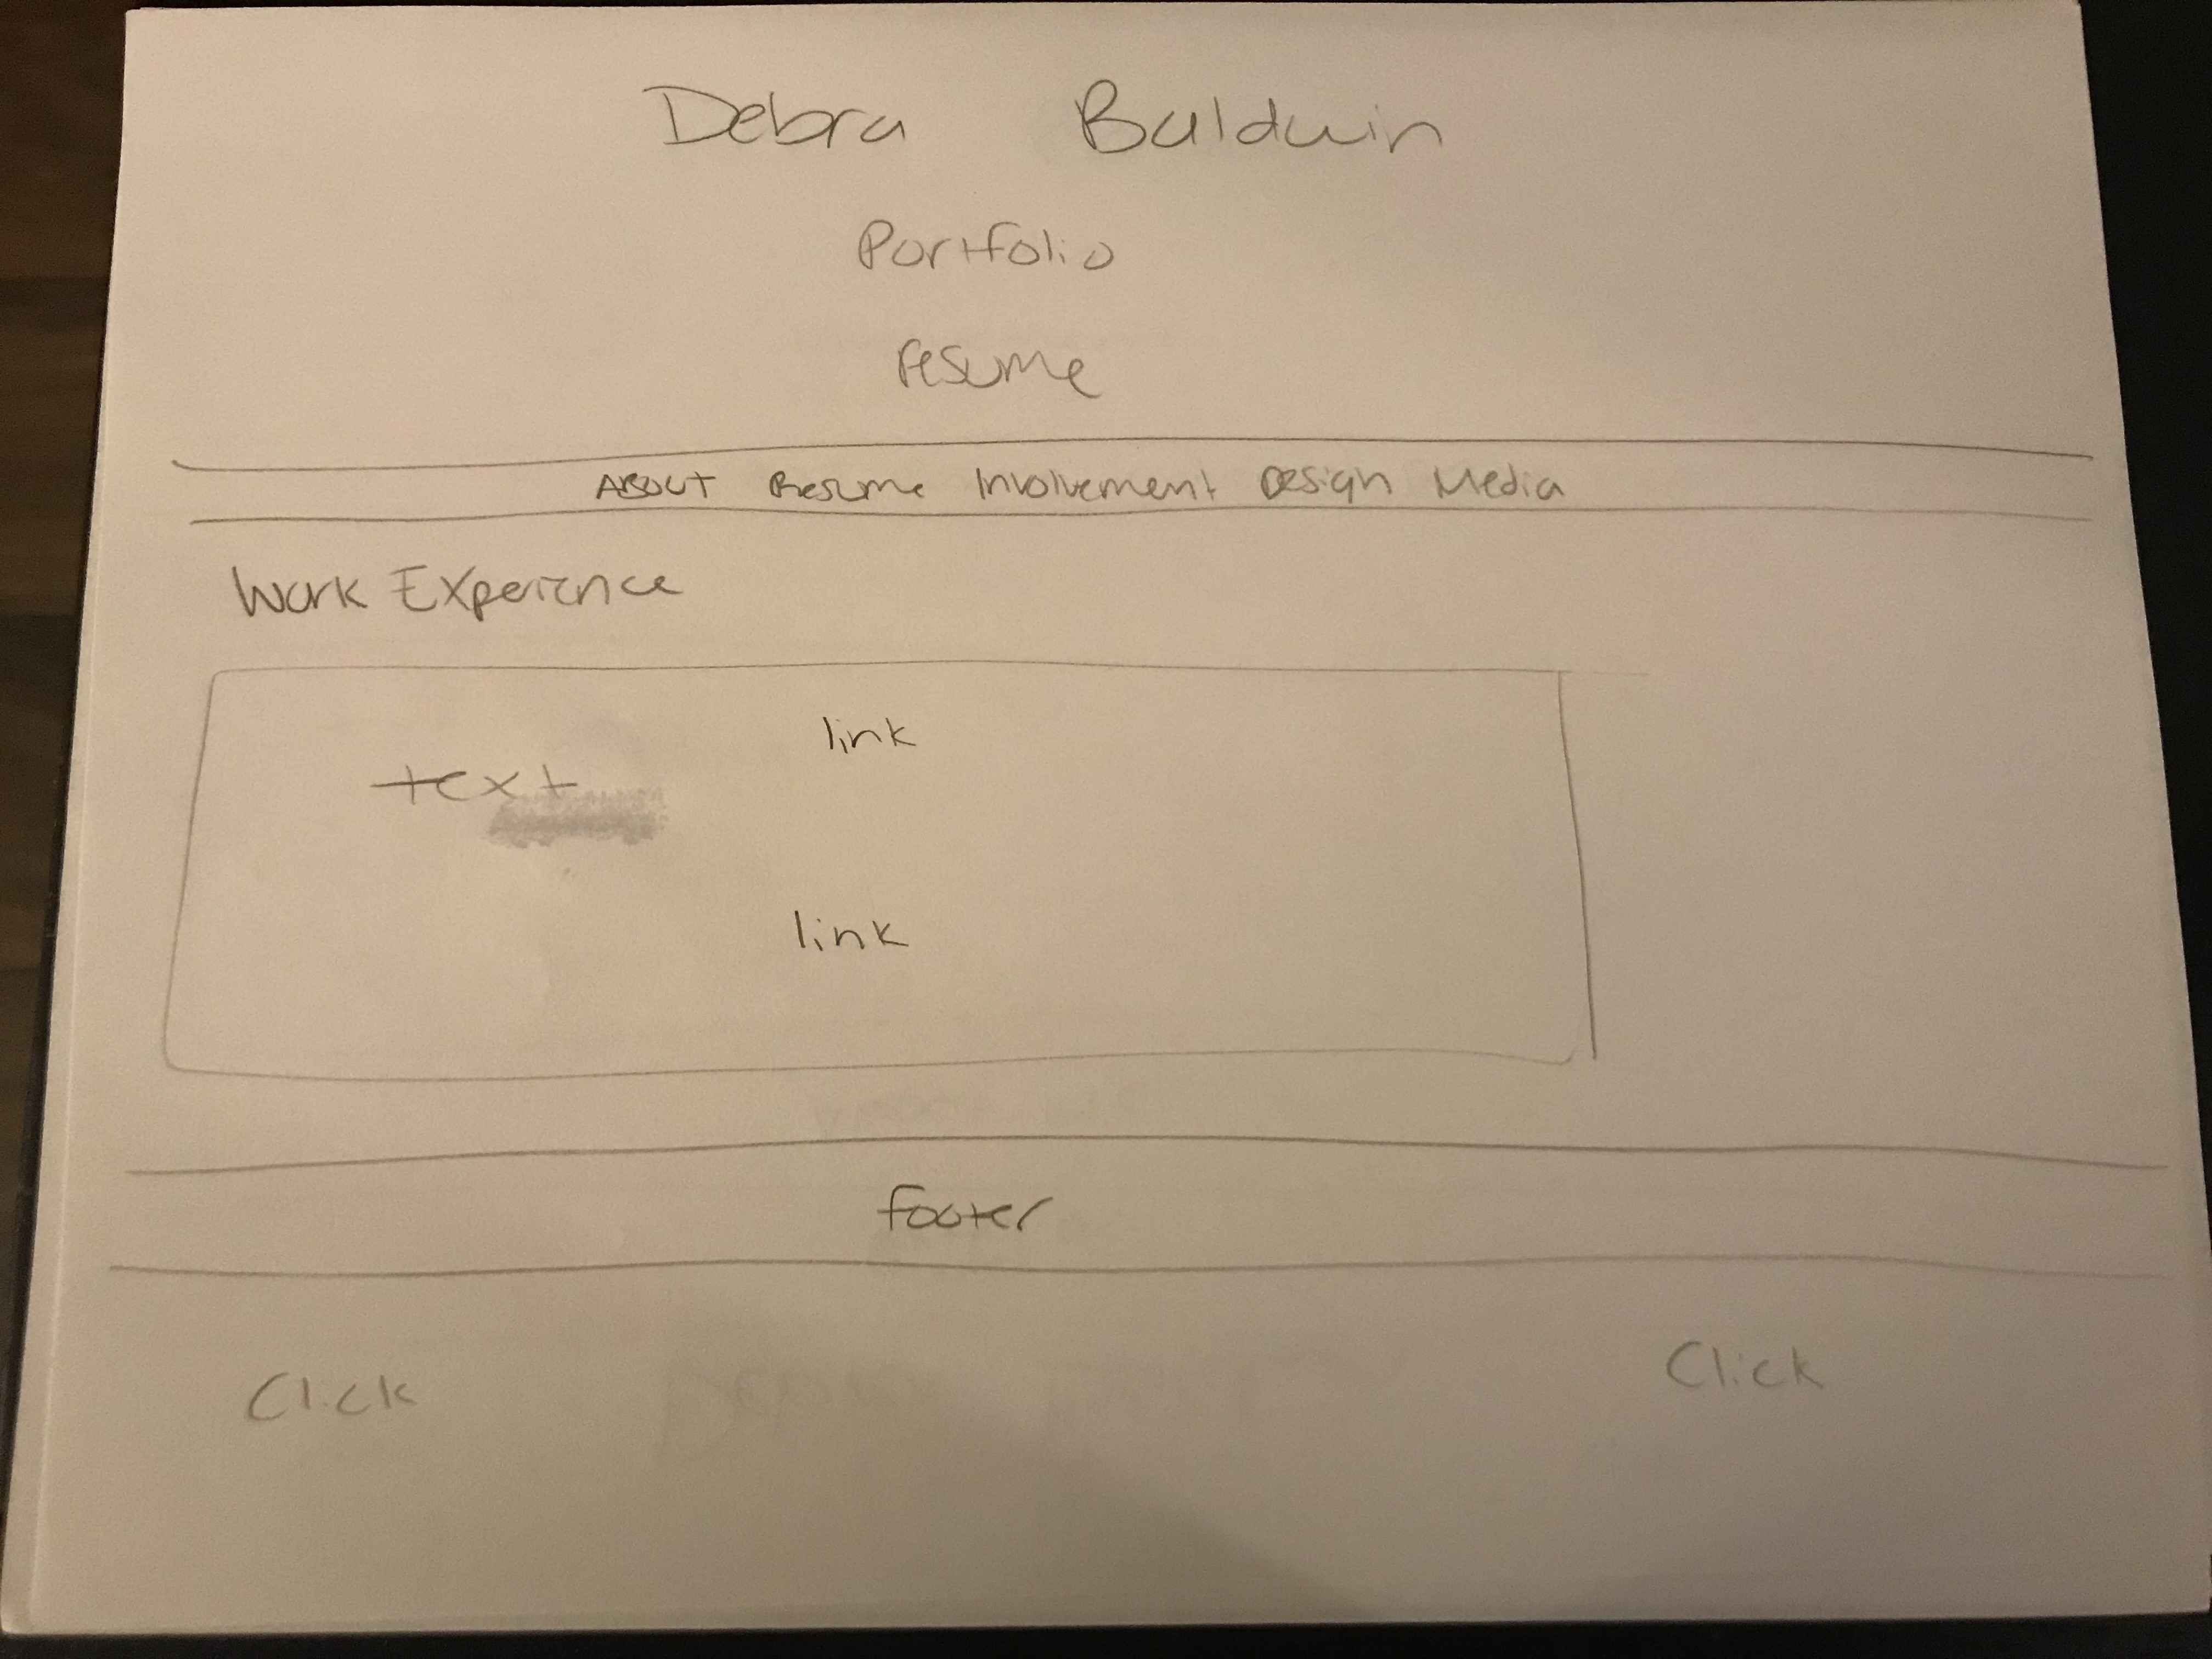 Debra Bulduin
Portfolio
Resume
About Resume Involvement Design Media
Work Experience
link
text
link
footer
Click Click